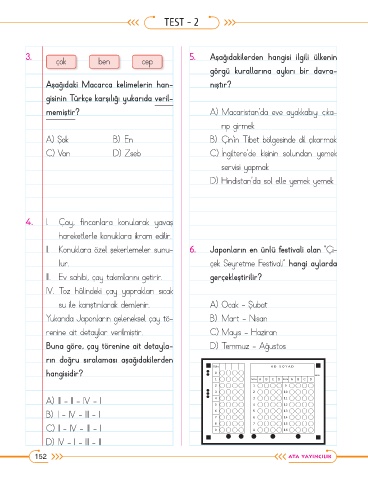 TEST - 2
3.
çok
ben
cep
Aşağıdaki Macarca kelimelerin han-
gisinin Türkçe karşılığı yukarıda veril-
memiştir?
A) Sok
B) En
C) Van
D) Zseb
4.
I. Çay, fincanlara konularak yavaş
hareketlerle konuklara ikram edilir.
II. Konuklara özel şekerlemeler sunu-
lur.
III. Ev sahibi, çay takımlarını getirir.
IV. Toz hâlindeki çay yaprakları sıcak
su ile karıştırılarak demlenir.
Yukarıda Japonların geleneksel çay tö-
renine ait detaylar verilmiştir.
Buna göre, çay törenine ait detayla-
rın doğru sıralaması aşağıdakilerden
hangisidir?
A) III - II - IV - I
B) I - IV - III - I
C) II - IV - III - I
D) IV - I - III - II
5.
Aşağıdakilerden hangisi ilgili ülkenin
görgü kurallarına aykırı bir davra-
nıştır?
A) Macaristan'da eve ayakkabıyı çıka-
rıp girmek
B) Çin'in Tibet bölgesinde dil çıkarmak
C) İngiltere'de kişinin solundan yemek
servisi yapmak
D) Hindistan'da sol elle yemek yemek
6.
Japonların en ünlü festivali olan "Çi-
çek Seyretme Festivali" hangi aylarda
gerçekleştirilir?
A) Ocak - Şubat
B) Mart - Nisan
C) Mayıs - Haziran
D) Temmuz - Ağustos
152
ATA YAYINCILIK